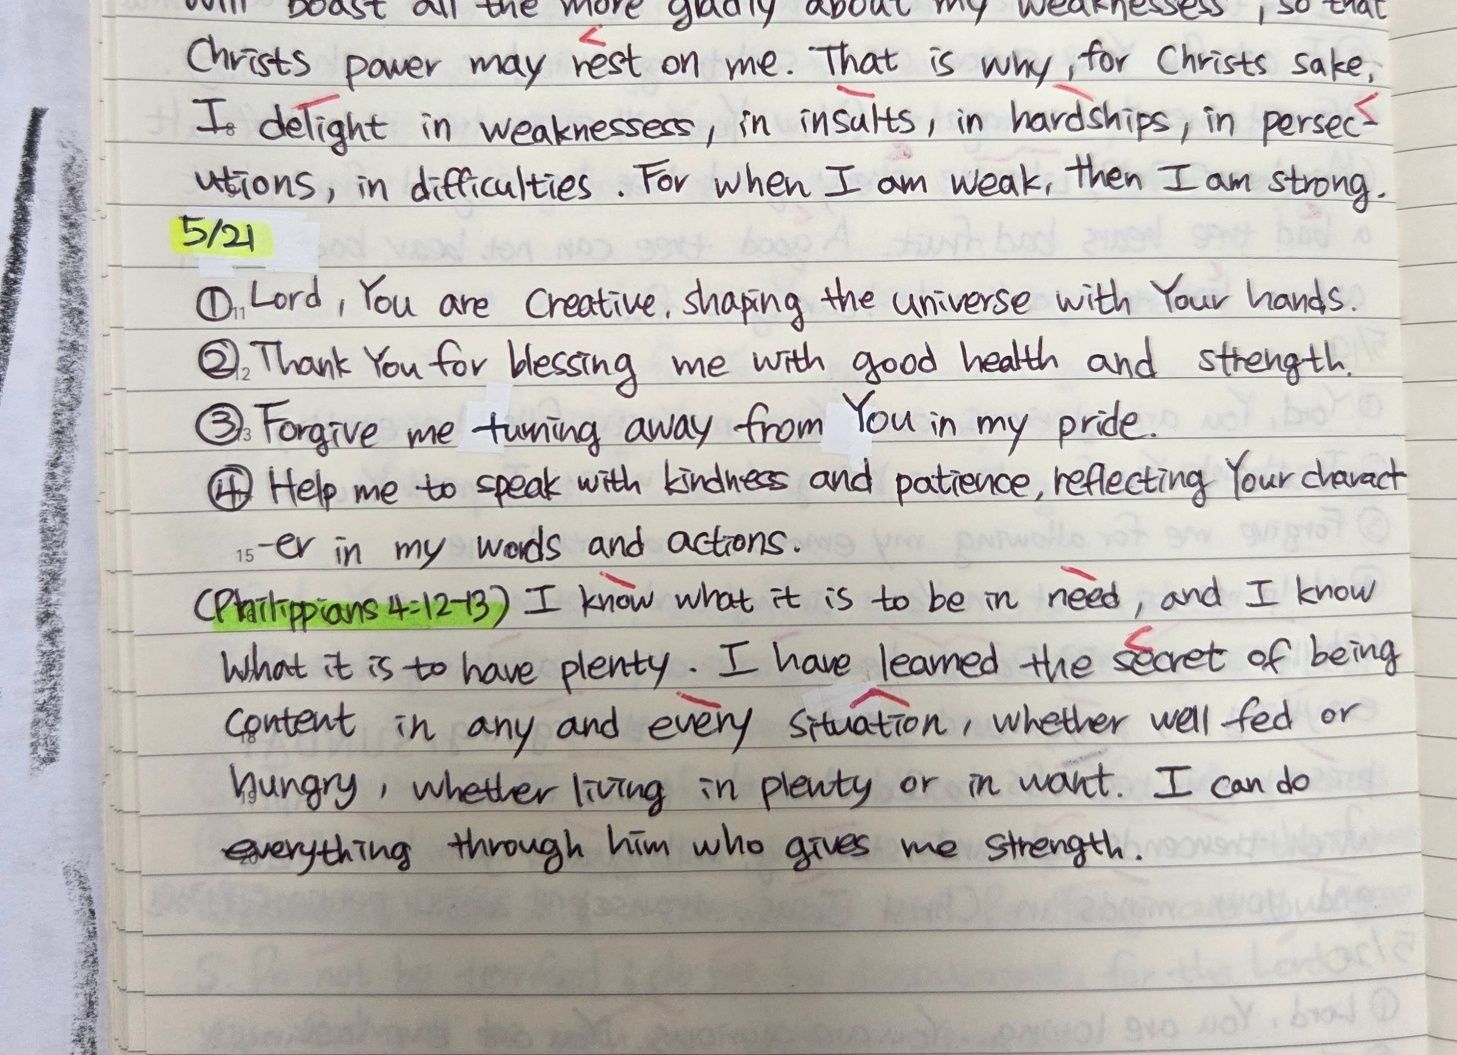 will boast all the more gladly about my weaknessess, so that
Christs power may rest on me. That is why, for Christs sake,
I delight in weaknessess, in insults, in hardships, in persec-
utions, in difficulties. For when I am weak, then I am strong.
5/21
① Lord, You are Creative, shaping the universe with Your hands.
② Thank You for blessing me with good health and strength.
③ Forgive me turning away from You in my pride.
④ Help me to speak with kindness and patience, reflecting Your charact
-er in my words and actions.
(Philippians 4:12-13) I know what it is to be in need, and I know
What it is to have plenty. I have learned the secret of being
content in any and every situation, whether well fed or
hungry, whether living in plenty or in want. I can do
everything through him who gives me strength.